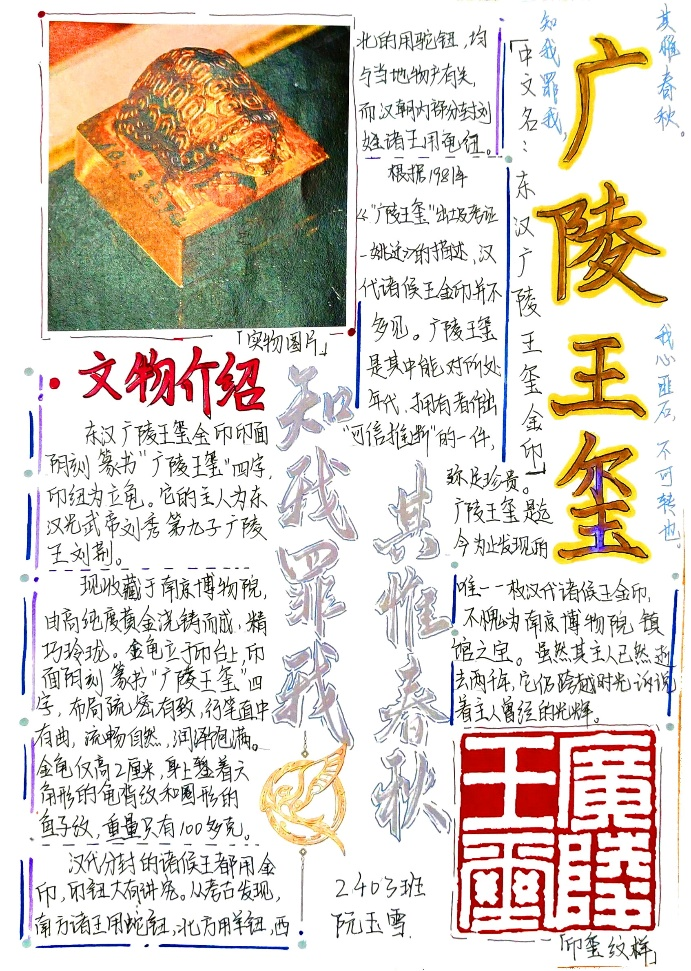 广陵王玺
「中文名：东汉广陵王玺金印」
知我罪我，
其惟春秋。
我心匪石，不可转也。
「实物图片」
文物介绍
东汉广陵王玺金印印面
阴刻篆书“广陵王玺”四字，
印纽为立龟。它的主人为东
汉光武帝刘秀第九子广陵
王刘荆。
现收藏于南京博物院，
由高纯度黄金浇铸而成，精
巧玲珑。金龟立于印台上，印
面阴刻篆书“广陵王玺”四
字，布局疏密有致，行笔直中
有曲，流畅自然，润泽饱满。
金龟仅高2厘米，身上錾着六
角形的龟背纹和圆形的
鱼子纹，重量只有100多克。
汉代分封的诸侯王者都用金
印，印钮大有讲究。从考古发现，
南方诸王用蛇钮，北方用羊钮，西
北的用驼钮，均
与当地物产有关，
而汉朝内部分封刘
姓诸王用龟纽。
根据1981年
《“广陵王玺”出土及考证
-姚迁》的描述，汉
代诸侯王金印并不
多见。广陵王玺
是其中能对所处
年代、拥有者作出
“可信推断”的一件，
弥足珍贵。
广陵王玺是迄
今为止发现的
唯一一枚汉代诸侯王金印，
不愧为南京博物院镇
馆之宝。虽然其主人已然逝
去两千年，它仍跨越时光诉说
着主人曾经的光辉。
知我罪我
其惟春秋
2403班
阮玉雪
廣陵
王璽
「印玺纹样」